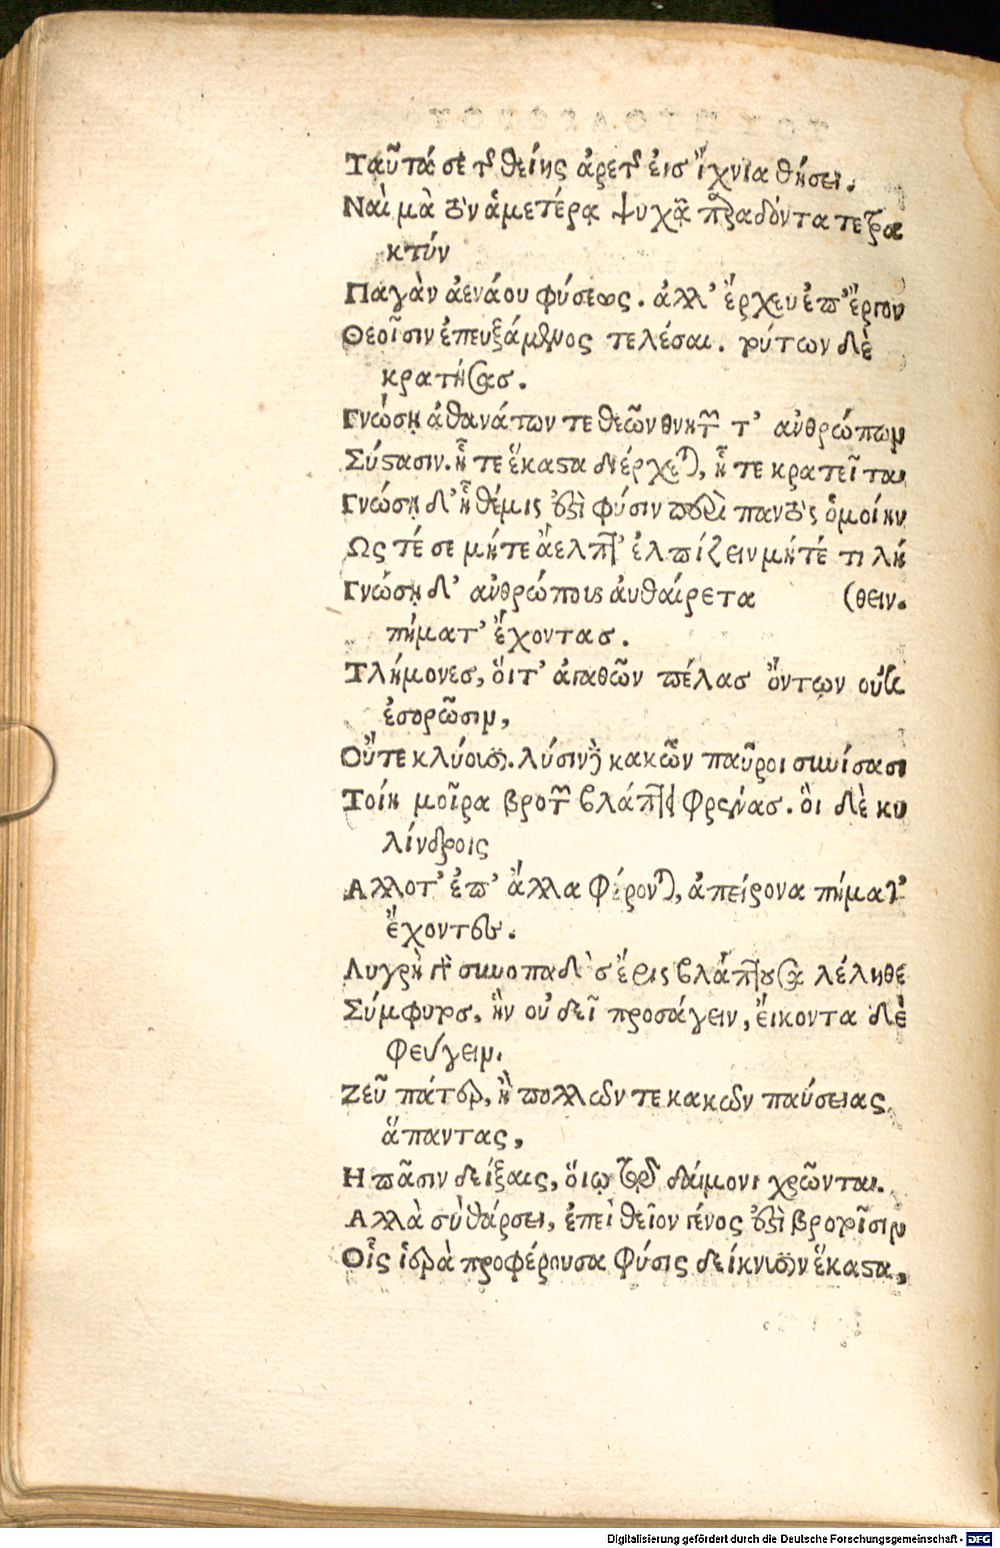 Ταῦτά σε τῆς θείης ἀρετῆς ἐισ ἴχνια θήσει.
Ναὶ μὰ τὸν ἁμετέρᾳ ψυχᾷ παραδόντα τετρα
κτύν
Παγὰν ἀενάου φύσεως. ἀλλ' ἔρχευ ἐπ' ἔργον
Θεοῖσιν ἐπευξάμενος τελέσαι. τούτων δὲ
κρατήσας.
Γνώσῃ ἀθανάτων τε θεῶν θνητῶν τ' ἀνθρώπων
Σύστασιν. ᾗ τε ἕκαστα διέρχεται, ᾗ τε κρατεῖται
Γνώσῃ δ' ᾗ θέμις ἐστὶ φύσιν περὶ παντὸς ὁμοίην
Ως τέ σε μήτε ἄελπτ' ἐλπίζειν μήτέ τι λή
Γνώσῃ δ' ἀνθρώπους ἀυθαίρετα (θειν.
πήματ' ἔχοντασ.
Τλήμονεσ, ὅιτ' ἀγαθῶν πέλασ ὄντων οὐκ
ἐσορῶσιν,
Οὔτε κλύουσι. λύσιν δὲ κακῶν παῦροι συνίσασι
Τοίη μοῖρα βροτῶν βλάπτει φρένας. ὃι δὲ κυ
λίνδροις
Αλλοτ' ἐπ' ἄλλα φέρονται, ἀπείρονα πήματ'
ἔχοντες.
Λυγρὴ γὰρ συνοπαδὸσ ἔρις βλάπτουσα λέληθε
Σύμφυτοσ, ἣν οὐ δεῖ προσάγειν, ἔικοντα δὲ
φεύγειν.
Ζεῦ πάτερ, ἢ πολλῶν τε κακῶν παύσειας
ἅπαντας,
Η πᾶσιν δείξαις, ὅιῳ τῷ δάιμονι χρῶνται.
Αλλὰ σὺ θάρσει, ἐπεὶ θεῖον γένος ἐστὶ βροτοῖσιν
Οἷς ἱερὰ προφέρουσα φύσις δείκνυσιν ἕκαστα,
Digitalisierung gefördert durch die Deutsche Forschungsgemeinschaft - DFG